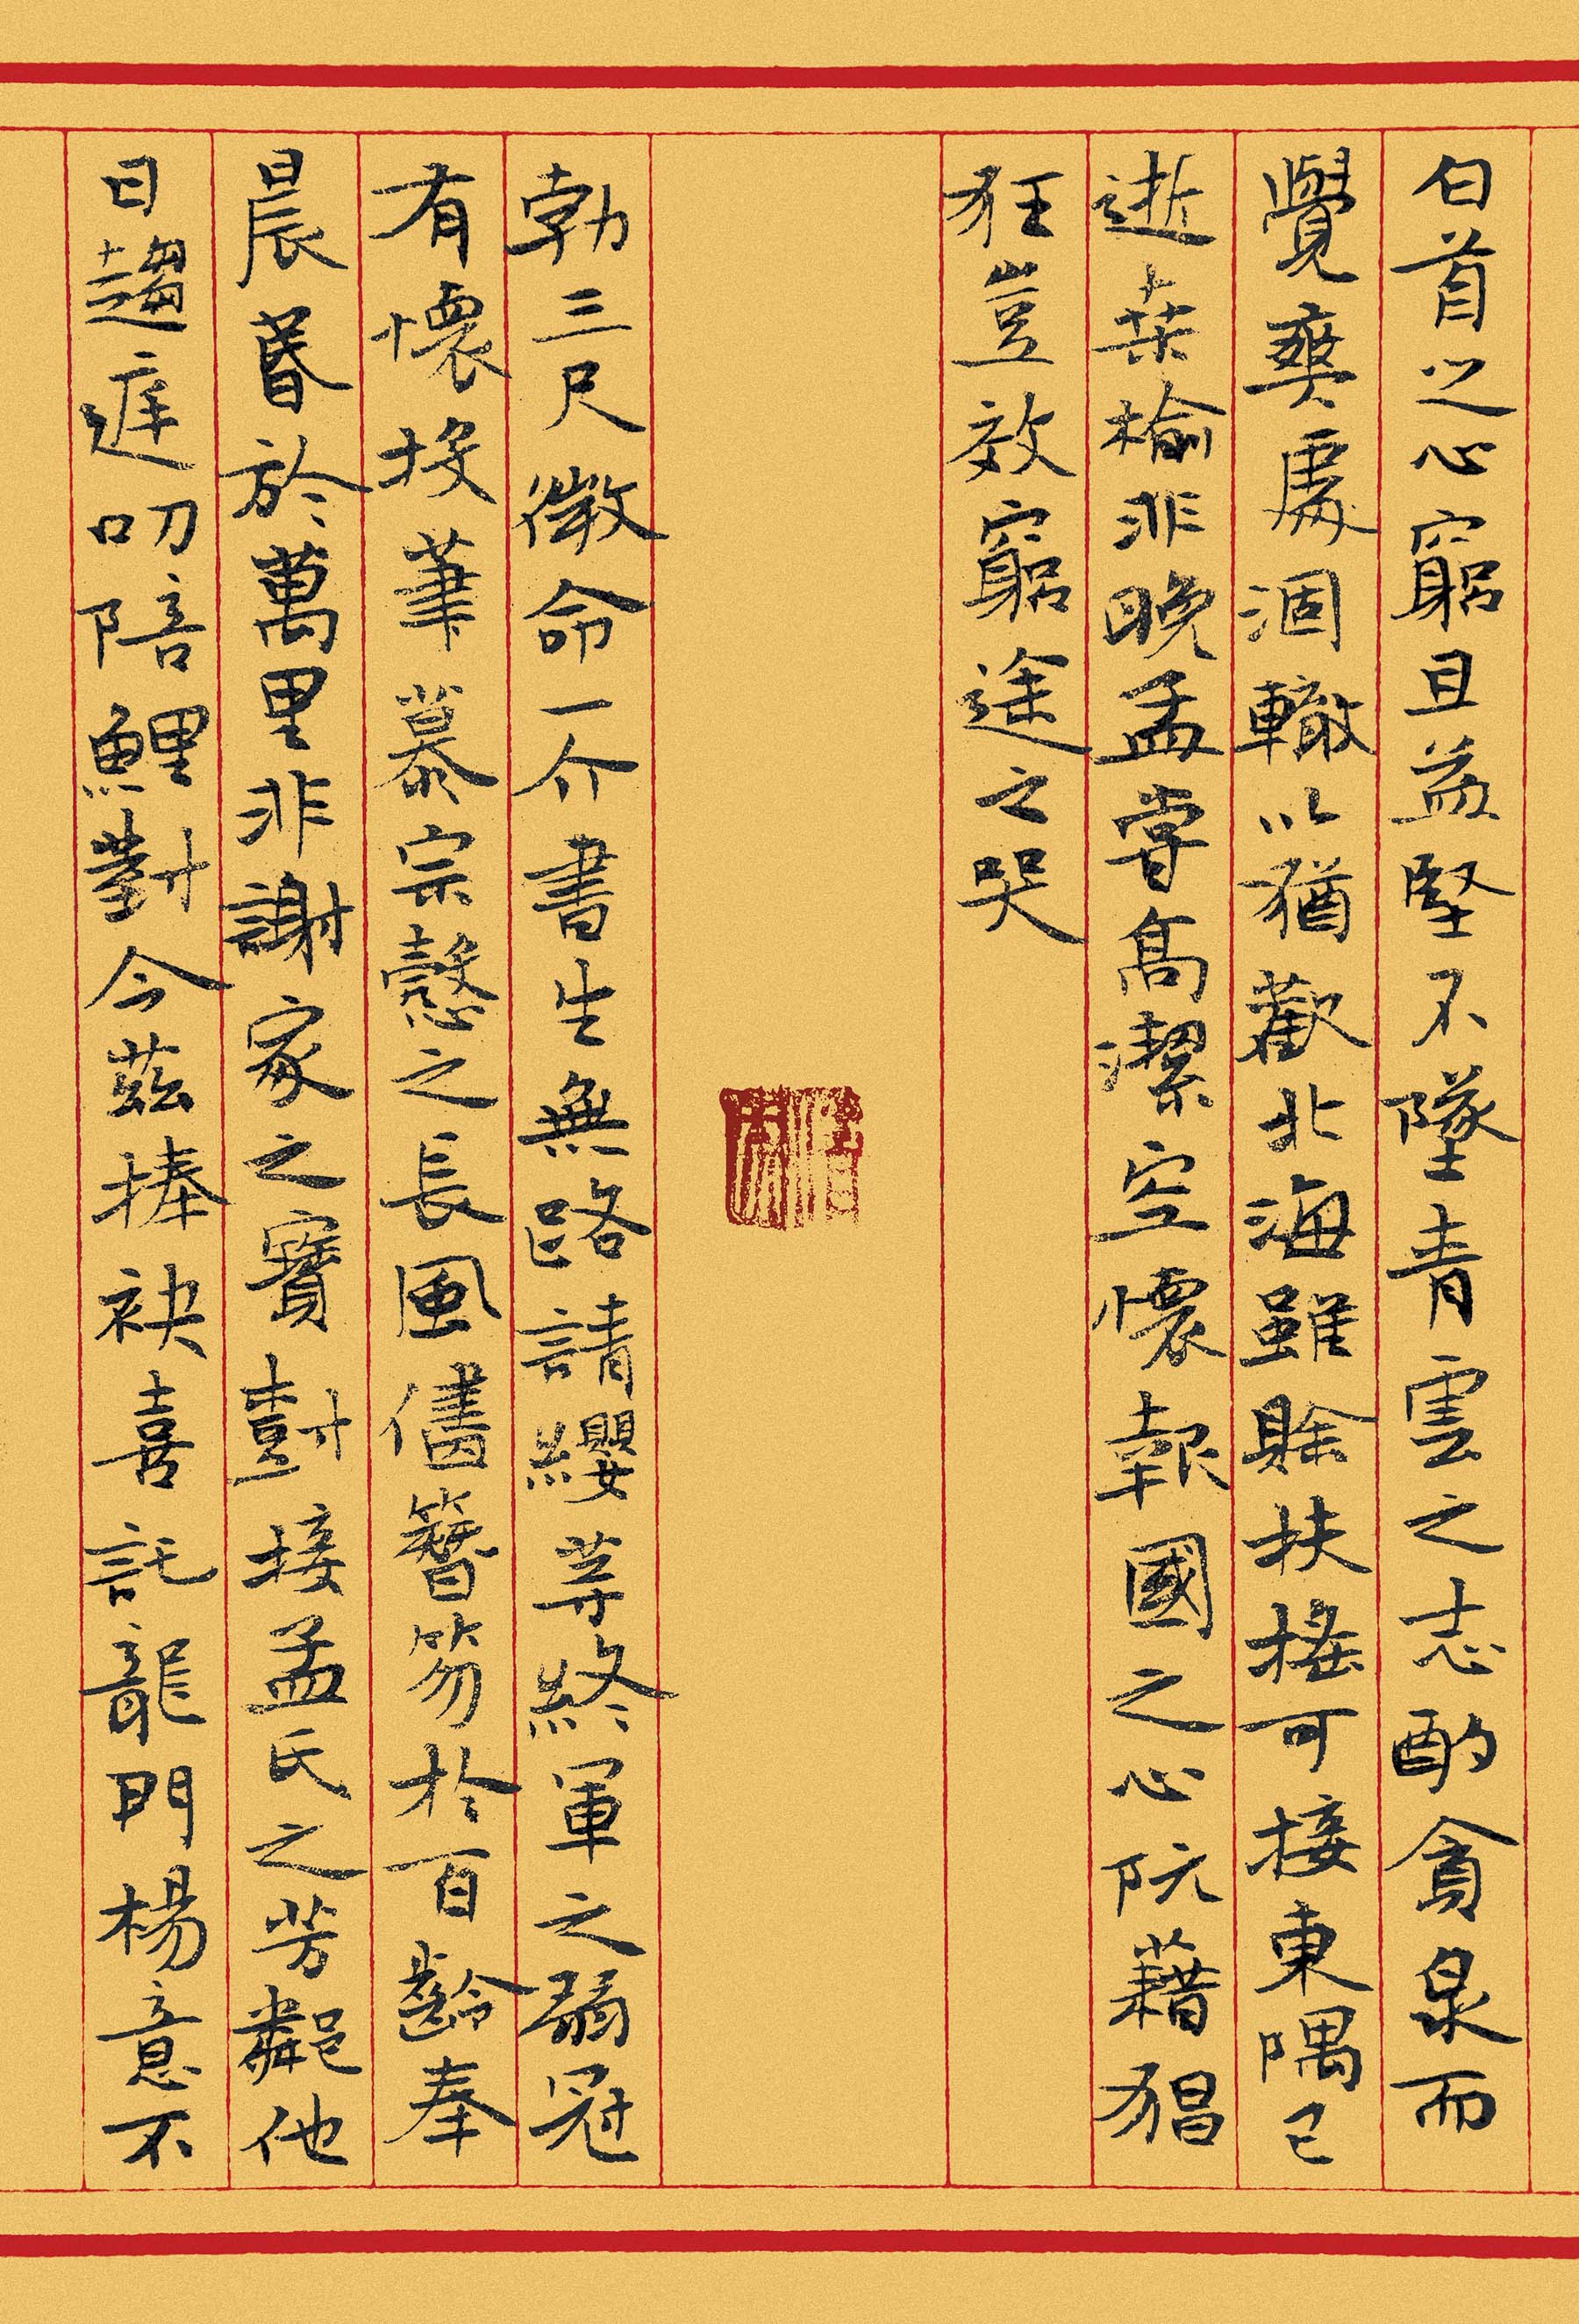 白首之心窮且益堅不墜青雲之志酌貪泉而
覺爽處涸轍以猶歡北海雖賒扶搖可接東隅已
逝桑榆非晚孟嘗高潔空懷報國之心阮藉猖
狂豈效窮途之哭
勃三尺微命一介書生無路請纓等終軍之弱冠
有懷投筆慕宗慤之長風簪笏於百齡奉
晨昏於萬里非謝家之寶尌接孟氏之芳鄰他
日趨庭叨陪鯉對今茲捧袂喜託龍門楊意不